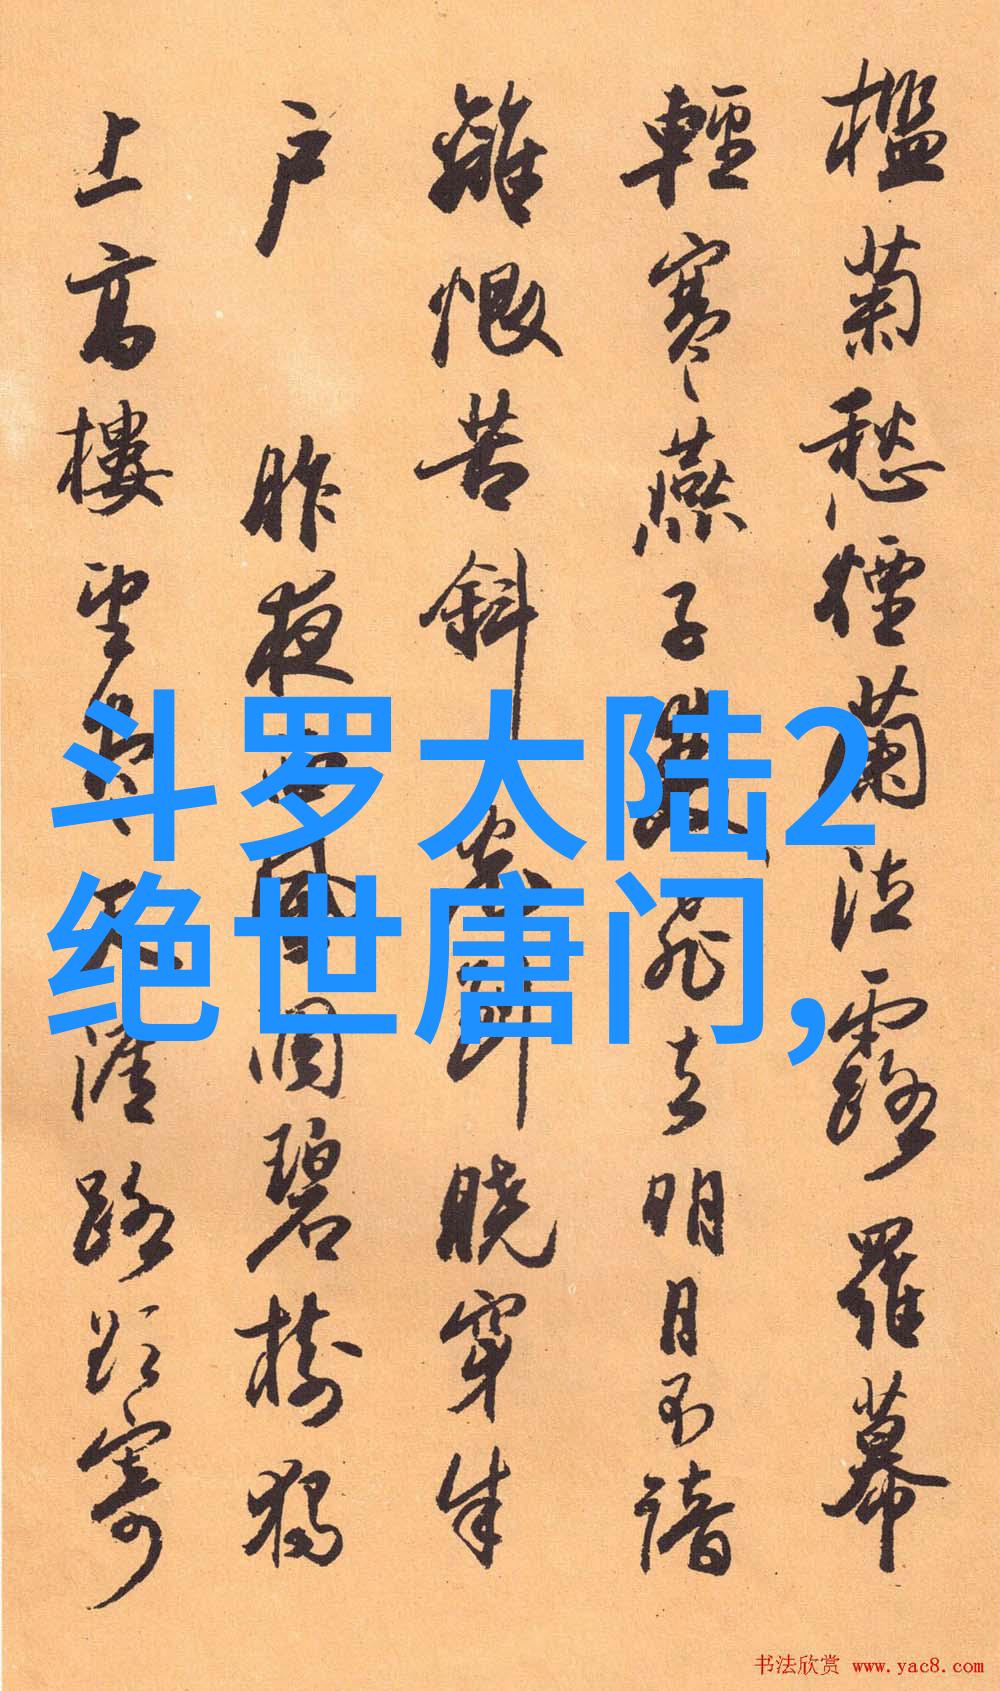 檻菊愁煙蘭泣露羅幕
輕寒燕子雙飛去明月不諳
離恨苦斜光到曉穿朱
户 昨夜西風凋碧樹獨
上高樓望盡天涯路欲寄
斗罗大陆2
绝世唐门,
书法欣赏 www.yac8.com